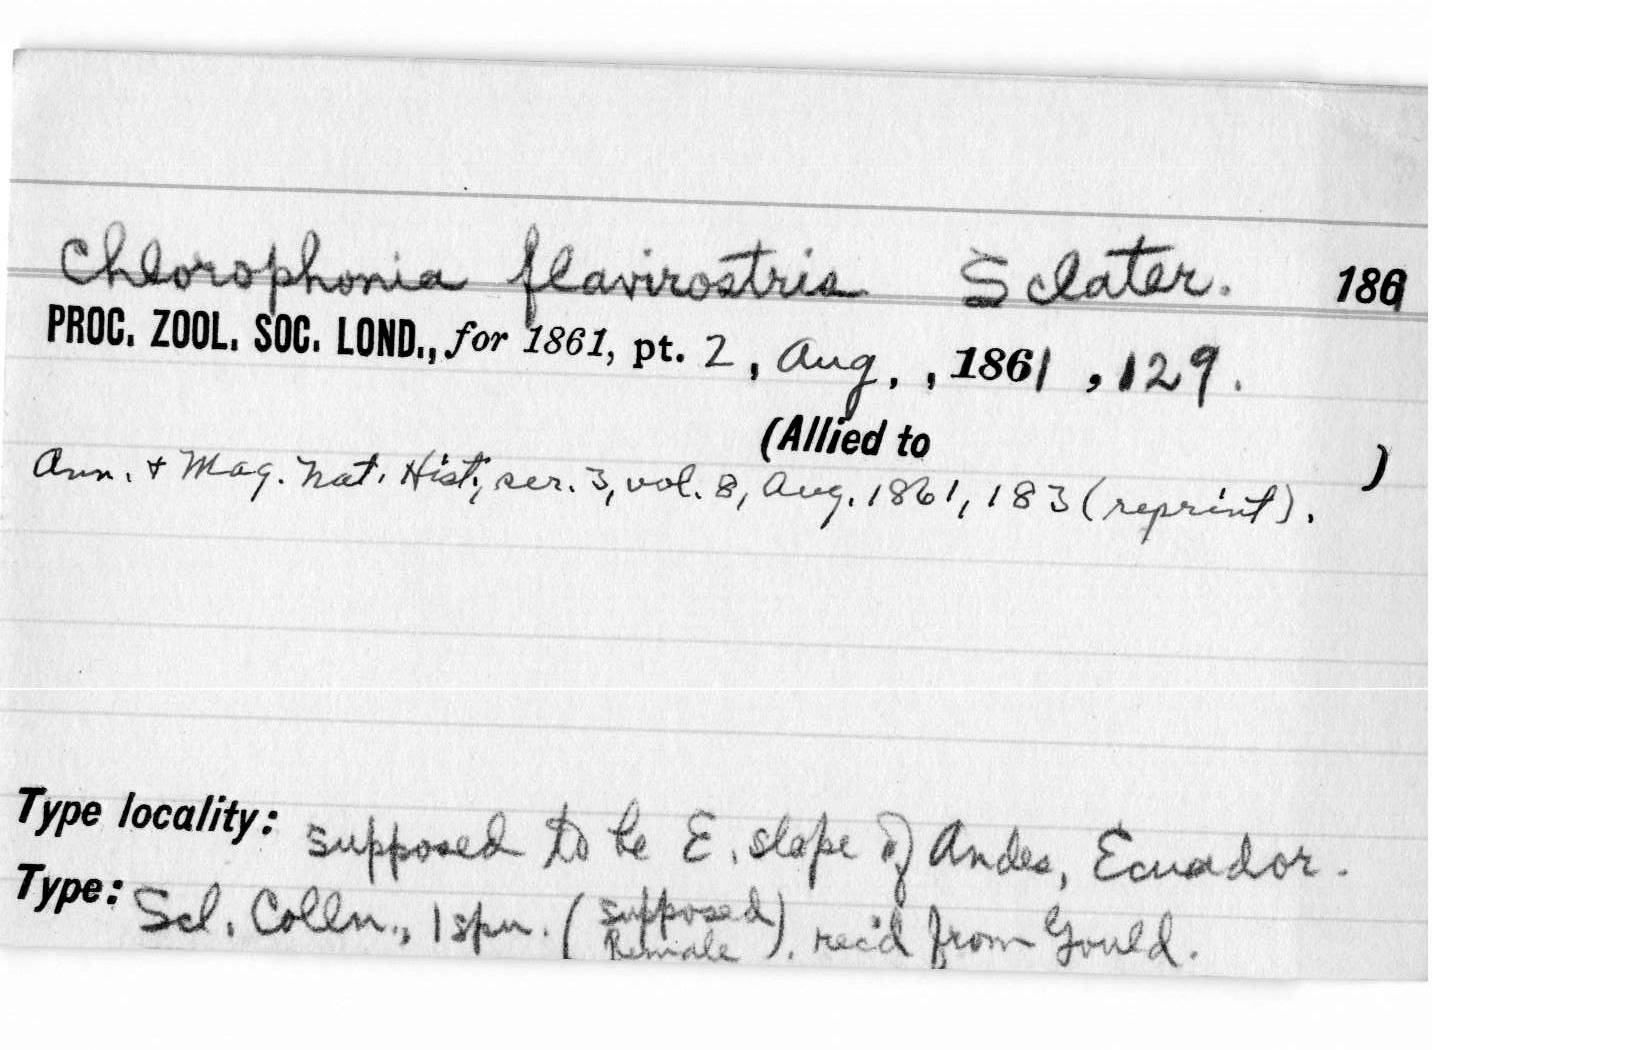 Chlorophonia flavirostris Sclater. 1861
PROC. ZOOL. SOC. LOND., for 1861, pt. 2, Aug., 1861, 129.
(Allied to )
Ann. & Mag. Nat. Hist., ser. 3, vol. 8, Aug. 1861, 183 (reprint).
Type locality: supposed to be E. slope of Andes, Ecuador.
Type: Scl. Colln., 1 spn. (supposed female). rec'd from Gould.